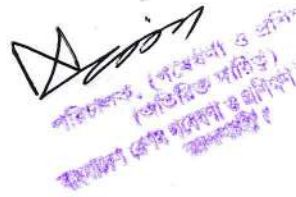 পরিচালক (গবেষণা ও প্রশিক্ষণ)
(অতিরিক্ত দায়িত্ব)
বাংলাদেশ রেশম গবেষণা ও প্রশিক্ষণ
রাজশাহী।